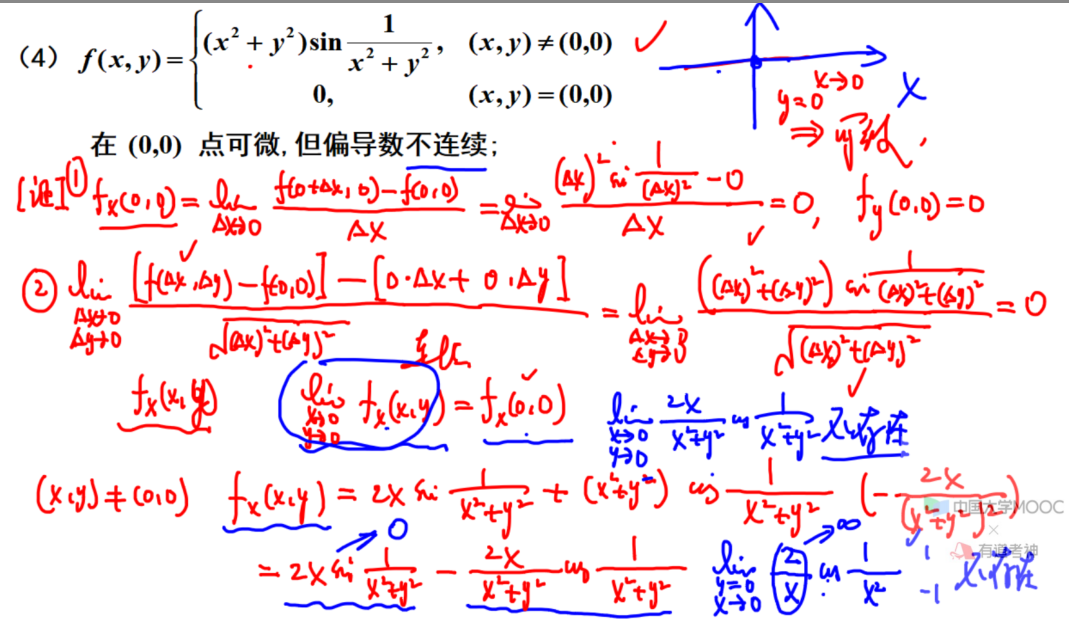 （4） f(x,y)={ (x²+y²)sin 1/(x²+y²), (x,y)≠(0,0) ✓
0, (x,y)=(0,0)
x→0
y=0
X
⇒ 可微
在 (0,0) 点可微,但偏导数不连续;
[证]① f_x(0,0) = lim_{Δx→0} (f(0+Δx,0)-f(0,0))/Δx = lim_{Δx→0} ((Δx)² sin 1/(Δx)² - 0)/Δx = 0, f_y(0,0)=0
② lim_{Δx→0 Δy→0} ([f(Δx,Δy)-f(0,0)]-[0·Δx+0·Δy])/√((Δx)²+(Δy)²) = lim_{Δx→0 Δy→0} (((Δx)²+(Δy)²) sin 1/((Δx)²+(Δy)²))/√((Δx)²+(Δy)²) = 0
f_x(x,y) lim_{x→0 y→0} f_x(x,y) = f_x(0,0) lim_{x→0 y→0} 2x/(x²+y²) cos 1/(x²+y²) 不存在
(x,y)≠(0,0) f_x(x,y) = 2x sin 1/(x²+y²) + (x²+y²) cos 1/(x²+y²) (- 2x/(x²+y²)²)
中国大学MOOC
×
有道考神
0 ∞
= 2x sin 1/(x²+y²) - 2x/(x²+y²) cos 1/(x²+y²) lim_{y=0 x→0} 2/x cos 1/x² 1 -1 不存在